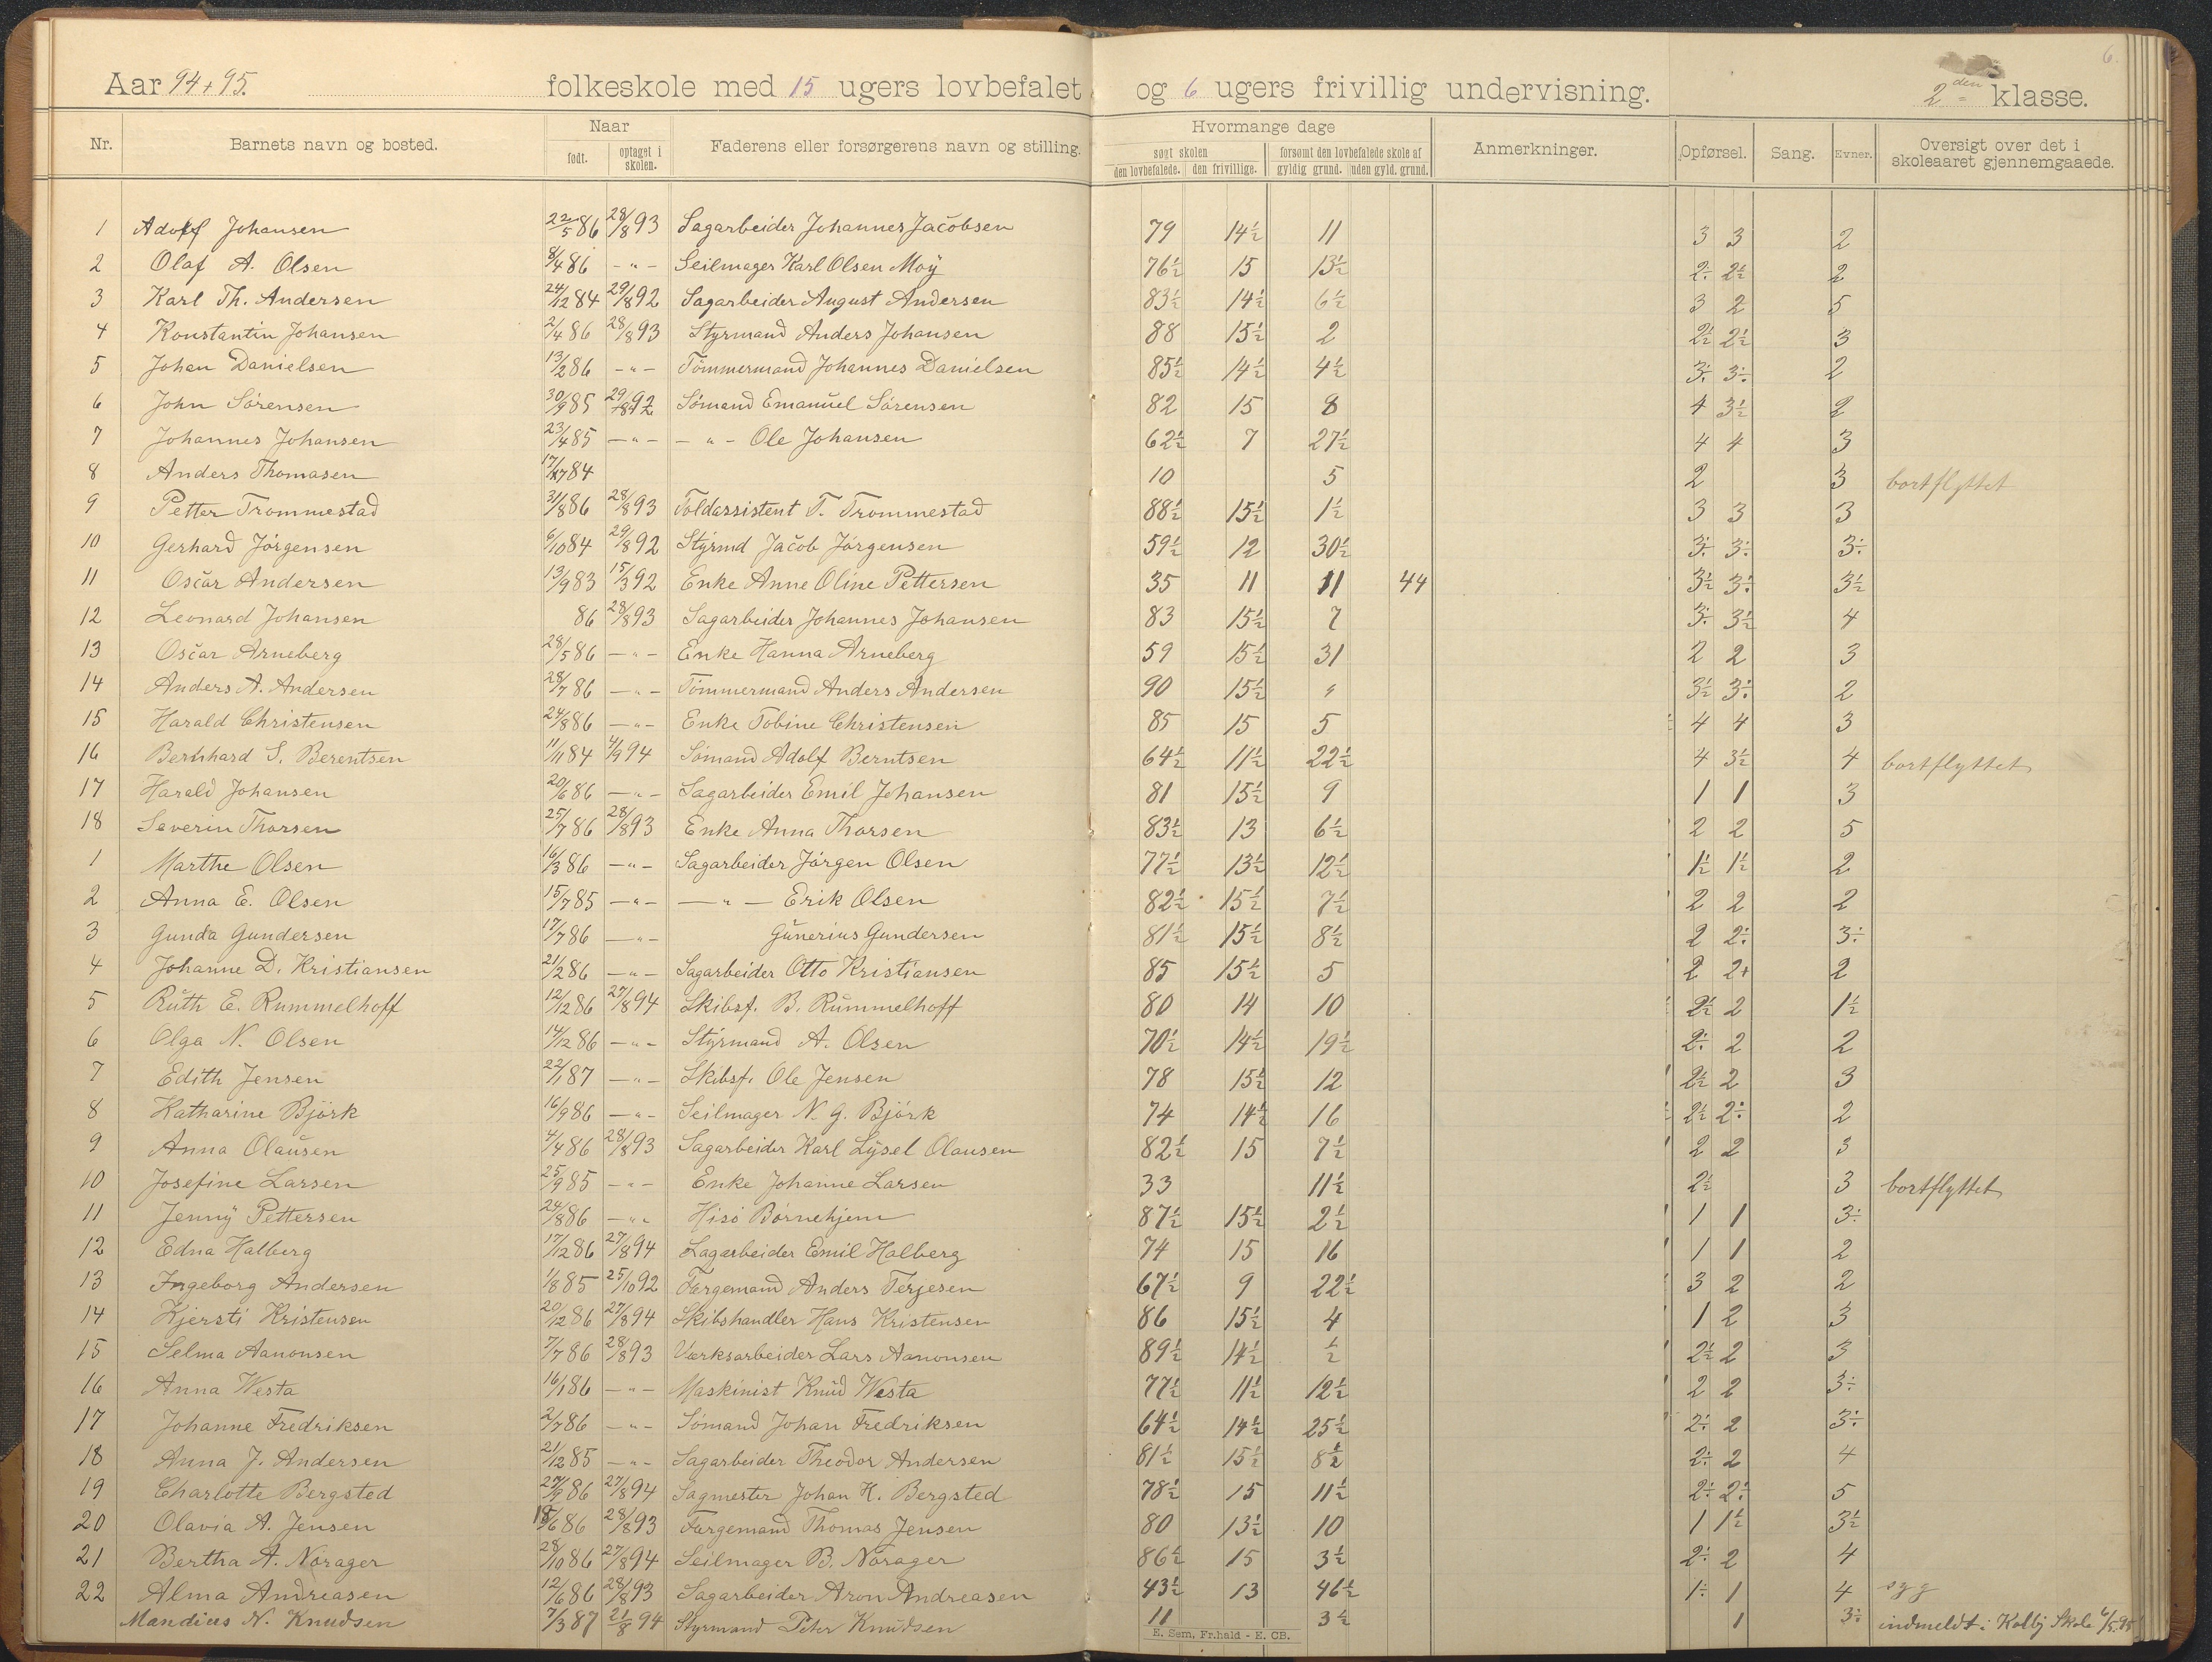 Aar 94+95. folkeskole med 15 ugers lovbefalet og 6 ugers frivillig undervisning. 2den klasse. 6.
Nr. Barnets navn og bosted. Naar født. optaget i skolen. Faderens eller forsørgerens navn og stilling. Hvormange dage søgt skolen den lovbefalede. den frivillige. forsømt den lovbefalede skole af gyldig grund. uden gyld. grund. Anmerkninger. Opførsel. Sang. Evner. Oversigt over det i skoleaaret gjennemgaaede.
1 Adolf Johansen 22/5 86 28/8 93 Sagarbeider Johannes Jacobsen 79 14½ 11 3 3 2
2 Olaf A. Olsen 8/4 86 -"- Seilmager Karl Olsen Moÿ 76½ 15 13½ 2÷ 2½ 2
3 Karl Th. Andersen 24/12 84 29/8 92 Sagarbeider August Andersen 83½ 14½ 6½ 3 2 5
4 Konstantin Johansen 2/4 86 28/8 93 Styrmand Anders Johansen 88 15½ 2 2½ 2½ 3
5 Johan Danielsen 13/2 86 -"- Tömmermand Johannes Danielsen 85½ 14½ 4½ 3÷ 3÷ 2
6 John Sörensen 30/9 85 29/8 92 Sömand Emanuel Sörensen 82 15 8 4 3½ 2
7 Johannes Johansen 23/4 85 -"- -"- Ole Johansen 62½ 7 27½ 4 4 3
8 Anders Thomasen 84 10 5 2 3 bortflyttet
9 Petter Trommestad 31/8 86 28/8 93 Toldassistent T. Trommestad 88½ 15½ 1½ 3 3 3
10 Gerhard Jörgensen 6/10 84 29/8 92 Stÿrmd Jacob Jörgensen 59½ 12 30½ 3÷ 3÷ 3÷
11 Oscar Andersen 13/9 83 15/3 92 Enke Anne Oline Pettersen 35 11 11 44 3½ 3÷ 3½
12 Leonard Johansen 86 28/8 93 Sagarbeider Johannes Johansen 83 15½ 7 3÷ 3½ 4
13 Oscar Arneberg 28/5 86 -"- Enke Hanna Arneberg 59 15½ 31 2 2 3
14 Anders A. Andersen 28/7 86 -"- Tömmermand Anders Andersen 90 15½ " 3½ 3÷ 2
15 Harald Christensen 24/8 86 -"- Enke Tobine Christensen 85 15 5 4 4 3
16 Bernhard S. Berentsen 11/11 84 4/9 94 Sömand Adolf Berntsen 64½ 11½ 22½ 4 3½ 4 bortflyttet
17 Harald Johansen 20/6 86 -"- Sagarbeider Emil Johansen 81 15½ 9 1 1 3
18 Severin Thorsen 25/7 86 28/8 93 Enke Anna Thorsen 83½ 13 6½ 2 2 5
1 Marthe Olsen 16/3 86 -"- Sagarbeider Jörgen Olsen 77½ 13½ 12½ 1½ 1½ 2
2 Anna E. Olsen 15/7 85 -"- -"- Erik Olsen 82½ 15½ 7½ 2 2 2
3 Gunda Gundersen 17/7 86 -"- Gunerius Gundersen 81½ 15½ 8½ 2 2÷ 3÷
4 Johanne D. Kristiansen 21/2 86 -"- Sagarbeider Otto Kristiansen 85 15½ 5 2 2+ 2
5 Ruth E. Rummelhoff 12/12 86 27/8 94 Skibsf. B. Rummelhoff 80 14 10 2½ 2 1½
6 Olga N. Olsen 14/12 86 -"- Stÿrmand A. Olsen 70½ 14½ 19½ 2÷ 2 2
7 Edith Jensen 22/1 87 -"- Skibsf. Ole Jensen 78 15½ 12 2½ 2 3
8 Katharine Björk 16/9 86 -"- Seilmager N. G. Björk 74 14½ 16 2½ 2÷ 2
9 Anna Olausen 4/4 86 28/8 93 Sagarbeider Karl Lÿsel Olausen 82½ 15 7½ 2 2 3
10 Josefine Larsen 25/9 85 -"- Enke Johanne Larsen 33 11½ 2½ 3 bortflyttet
11 Jennÿ Pettersen 24/8 86 -"- Hisö Börnehjem 87½ 15½ 2½ 1 1 3÷
12 Edna Halberg 17/12 86 27/8 94 Sagarbeider Emil Halberg 74 15 16 1 1 2
13 Ingeborg Andersen 1/8 85 25/10 92 Færgemand Anders Terjesen 67½ 9 22½ 3 2 2
14 Kjersti Kristensen 20/12 86 27/8 94 Skibshandler Hans Kristensen 86 15½ 4 1 2 3
15 Selma Aanonsen 7/7 86 28/8 93 Værksarbeider Lars Aanonsen 89½ 14½ ½ 2½ 2 3
16 Anna Westa 16/1 86 -"- Maskinist Knud Westa 77½ 11½ 12½ 2 2 3÷
17 Johanne Fredriksen 2/7 86 -"- Sömand Johan Fredriksen 64½ 14½ 25½ 2÷ 2 3÷
18 Anna J. Andersen 21/12 85 -"- Sagarbeider Theodor Andersen 81½ 15½ 8½ 2÷ 2 4
19 Charlotte Bergsted 27/9 86 27/8 94 Sagmester Johan H. Bergsted 78½ 15 11½ 2÷ 2÷ 5
20 Olavia A. Jensen 18/6 86 28/8 93 Færgemand Thomas Jensen 80 13½ 10 1 1½ 3½
21 Bertha A. Norager 28/10 86 27/8 94 Seilmager B. Norager 86½ 15 3½ 2÷ 2 4
22 Alma Andreasen 12/6 86 28/8 93 Sagarbeider Aron Andreasen 43½ 13 46½ 1÷ 1 4 syg
Mandius N. Knudsen 7/3 87 21/8 94 Styrmand Peter Knudsen 11 3½ 1 3÷ indmeldt i Kolbj Skole 6/5 95
E. Sem, Fr.hald - E. CB.